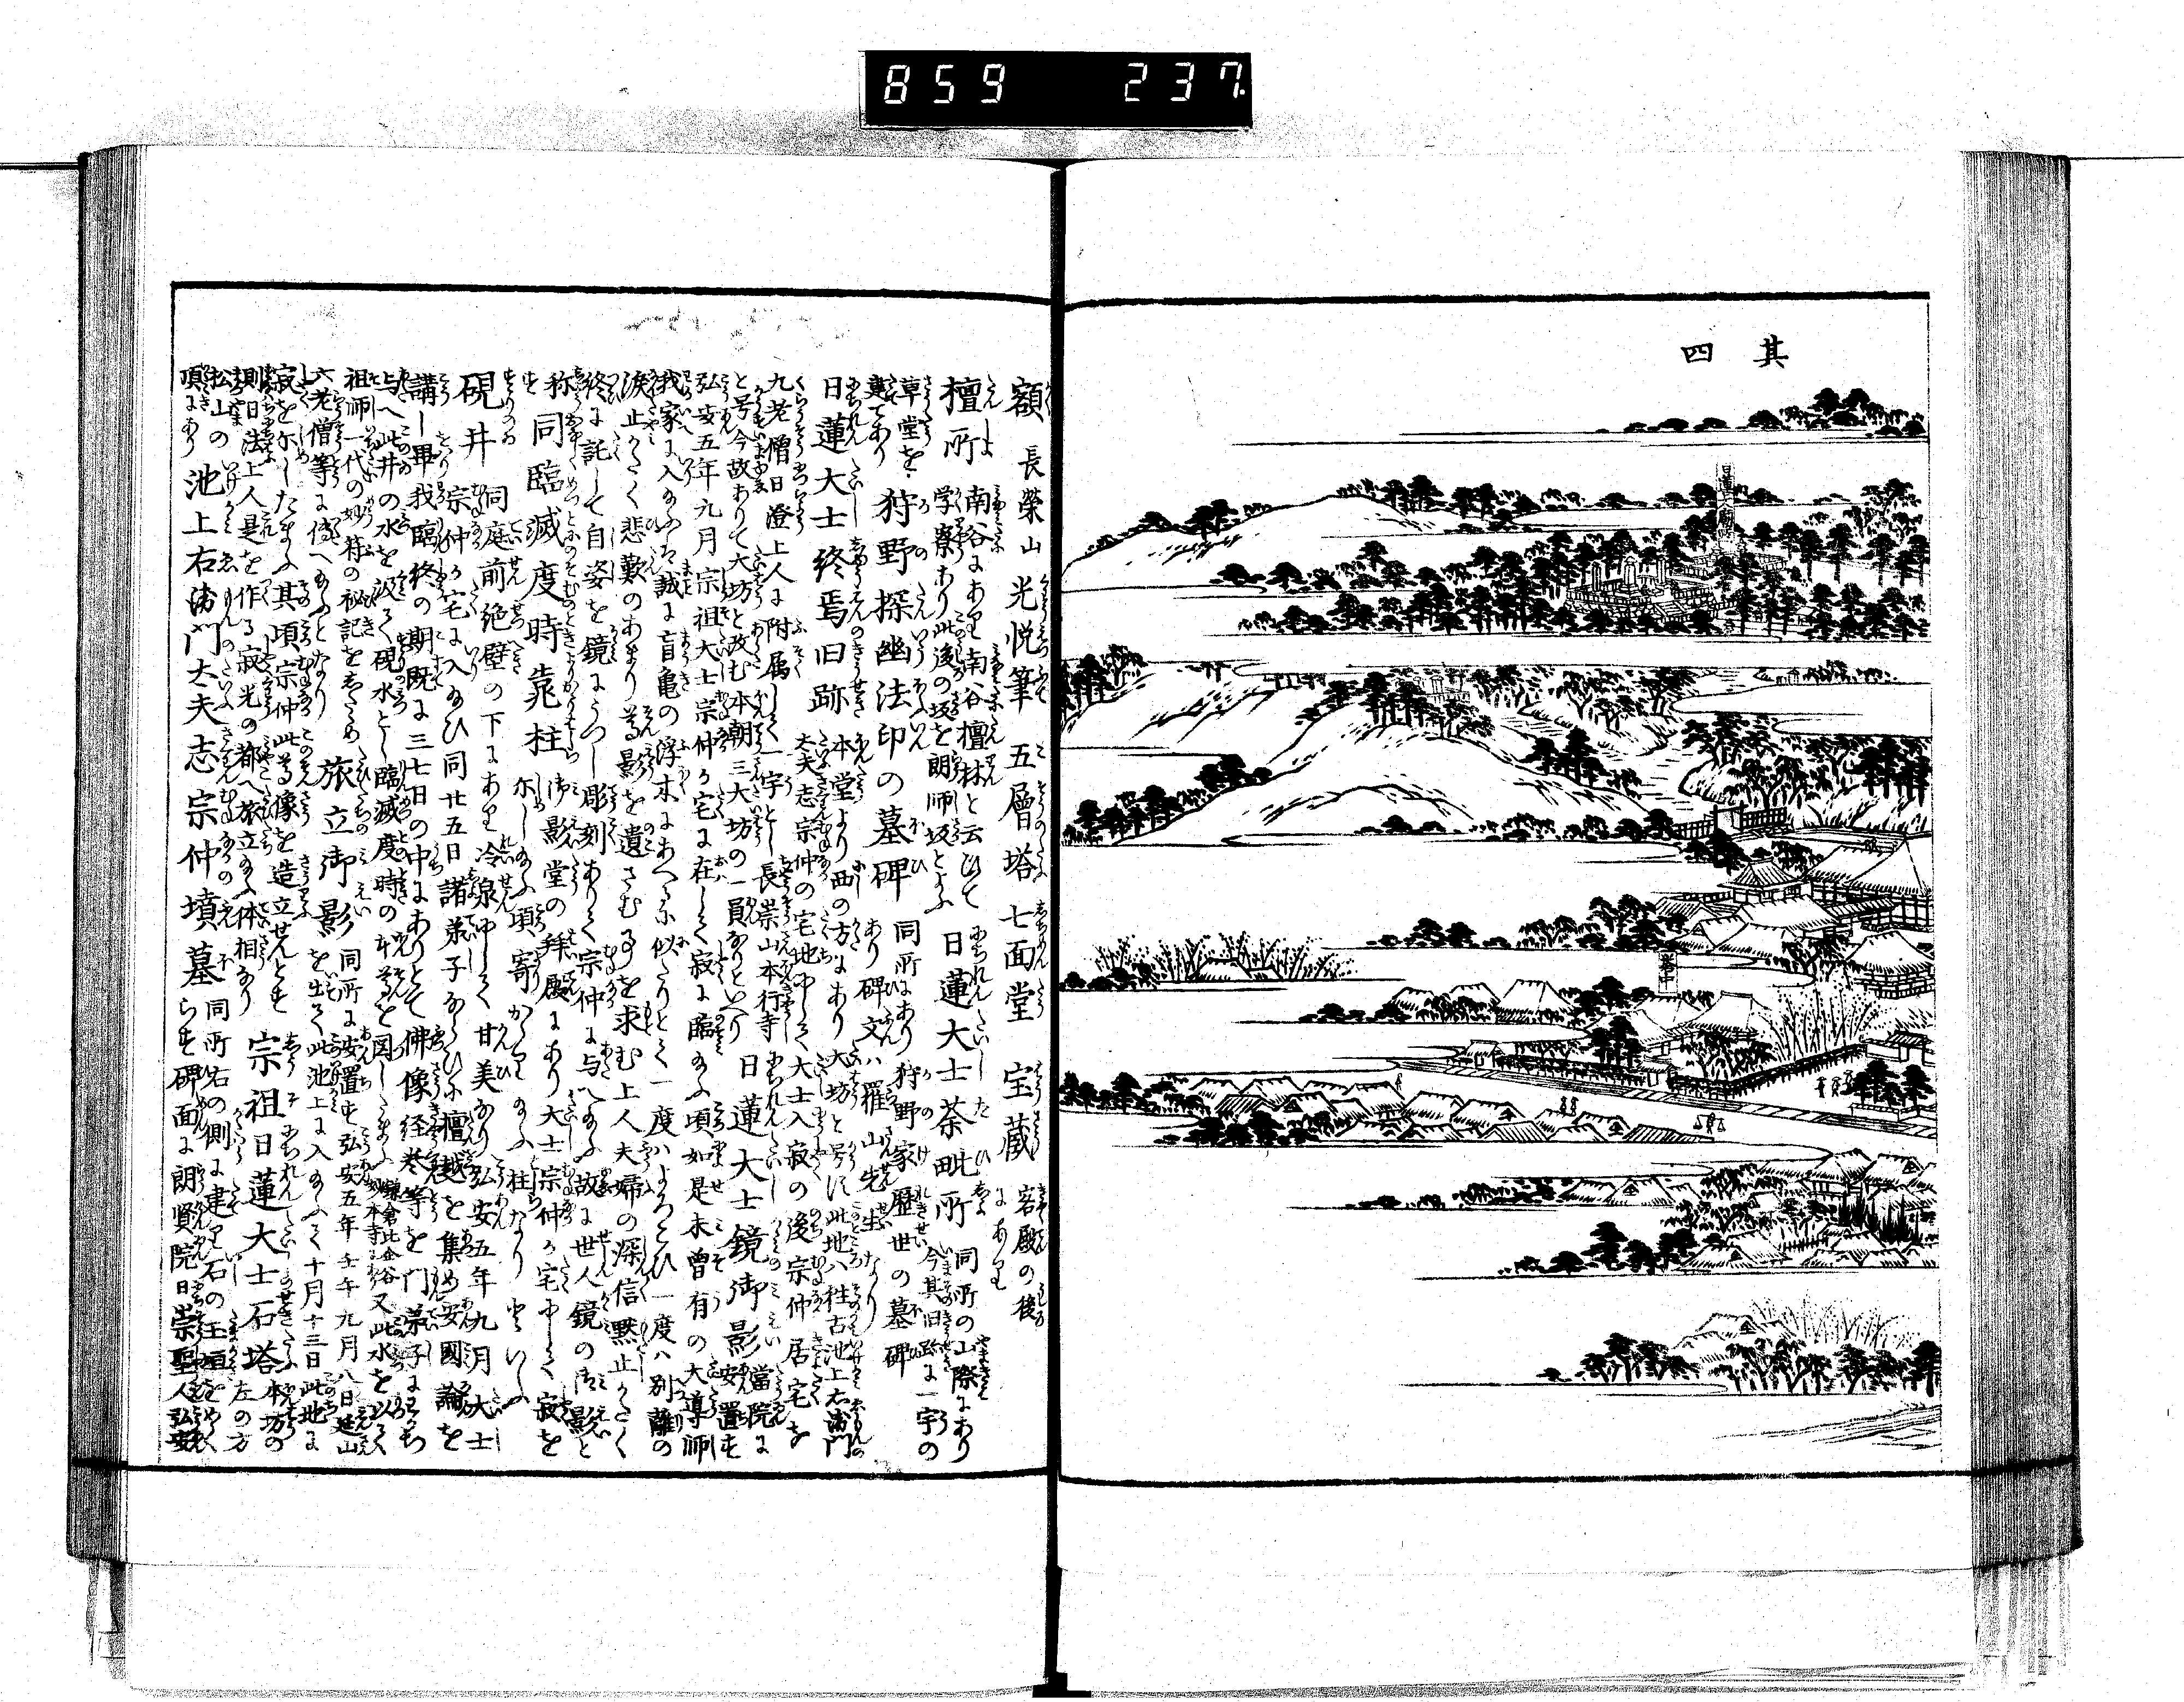 859 237
其四
額 長榮山 光悦筆 五層塔 七面堂 宝蔵 客殿の後にあり
檀所 南谷にあり南谷檀林と云ひて学寮あり此後の坂を朗師坂といふ 日蓮大士荼毗所 同所の山際にあり今其旧跡に一宇の
草堂を建てあり 狩野探幽法印の墓碑 同所にあり狩野家歴世の墓碑あり碑文ハ羅山先生なり
日蓮大士終焉旧跡 本堂より西の方にあり大坊と号に此地ハ往古池上右衛門太夫志宗仲の宅地にして大士入寂の後宗仲居宅を
九老僧日澄上人に附属して一宇とし長崇山本行寺
と号今故ありて大坊と改む本朝三大坊の一員なりといへり 日蓮大士鏡御影 當院に安置せ
弘安五年九月宗祖大士宗仲の宅に在して寂に臨給ふ頃如是未曽有の大導師
我家に入給ふハ誠に盲亀の浮木にあへるに似たりとて一度ハよろこひ一度ハ別離の
涙止かたく悲歎のあまり尊影を遺さむ事を求む上人夫婦の深信黙止かたく
終に託して自姿を鏡にうつし彫刻ありて宗仲に与へ給ふ故に世人鏡の御影と
称す 同臨滅度時靠柱 御影堂の拝殿にあり大士宗仲の宅にして寂を示し給ふ頃寄かゝり給ふ柱なりといふ
硯井 同庭前絶壁の下にあり冷泉にして甘美なり弘安五年九月大士
宗仲の宅に入給ひ同廿五日諸弟子ならひに檀越を集め安國論を
講し畢我臨終の期既に三七日の中にありとて佛像経巻等を門弟子にわかち
与へ此井の水を汲て硯水とし臨滅度時の本尊を図し給ふ鎌倉比企谷妙本寺に有又此水を以て
祖師一代の妙符の秘記をしたため 旅立御影 同所に安置せ弘安五年壬午九月八日延山
六老僧等に傳へ給ふとなり を出て此池上に入給ふて十月十三日此地に
寂を示したまふ其頃宗仲此尊像を造立せんとせ
則日法上人是を作る寂光の都へ旅立給ふ体相なり 宗祖日蓮大士石塔 本坊の左の方
松山の頂にあり 池上右衛門太夫志宗仲墳墓 同所右の側に建り石の玉垣をめくらせ碑面に朗賢院日崇聖人弘安